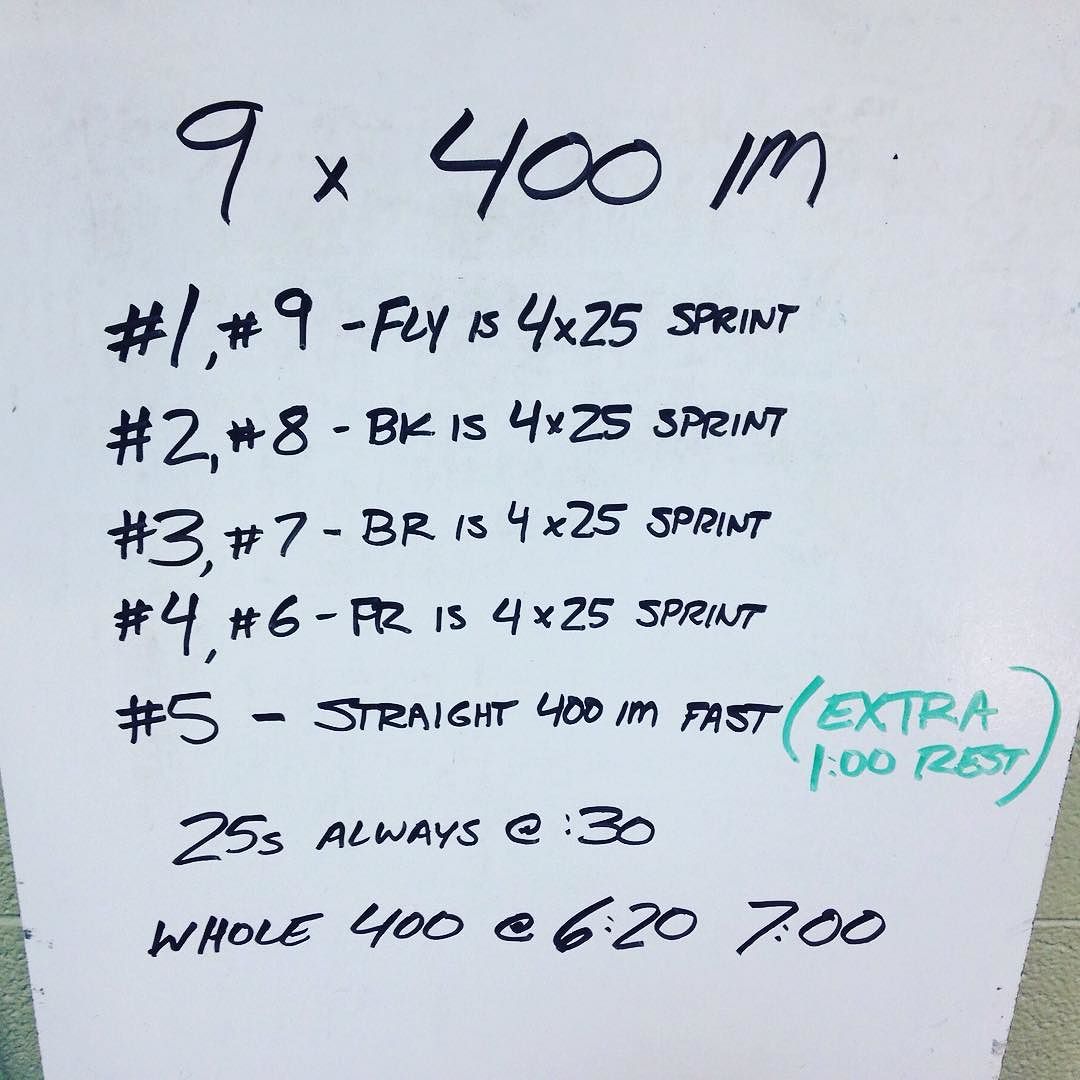 9 x 400 IM
#1, #9 - FLY IS 4x25 SPRINT
#2, #8 - BK IS 4x25 SPRINT
#3, #7 - BR IS 4x25 SPRINT
#4, #6 - FR IS 4x25 SPRINT
#5 - STRAIGHT 400 IM FAST (EXTRA
1:00 REST)
25s ALWAYS @ :30
WHOLE 400 @ 6:20 7:00